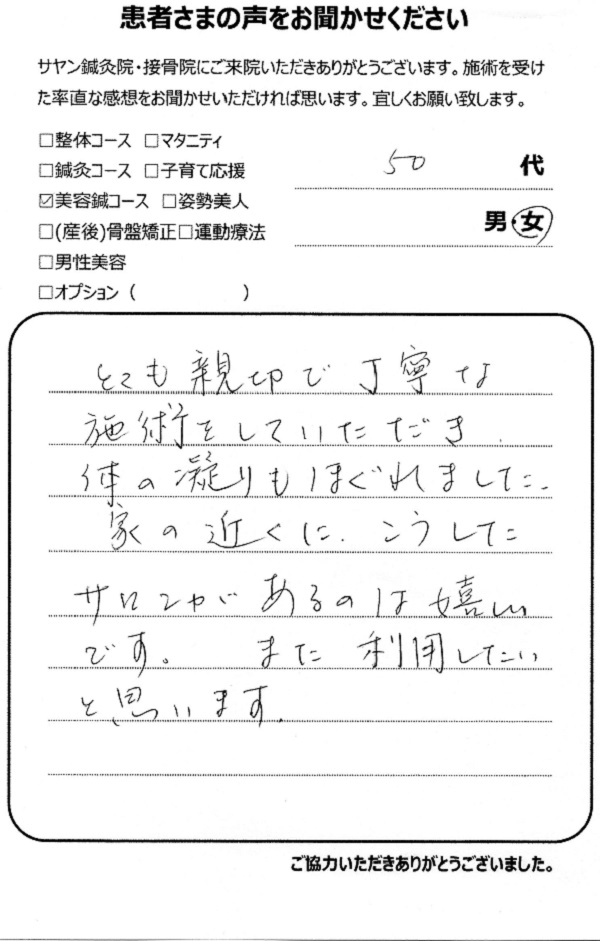 患者さまの声をお聞かせください
サヤン鍼灸院・接骨院にご来院いただきありがとうございます。施術を受け
た率直な感想をお聞かせいただければ思います。宜しくお願い致します。
□整体コース □マタニティ
□鍼灸コース □子育て応援
☑美容鍼コース □姿勢美人
□(産後)骨盤矯正□運動療法
□男性美容
□オプション（　　　　　）
50 代
男・女
とても親切で丁寧な
施術をしていただき、
体の凝りもほぐれました。
家の近くに、こうした
サロンがあるのは嬉しい
です。 また利用したい
と思います。
ご協力いただきありがとうございました。